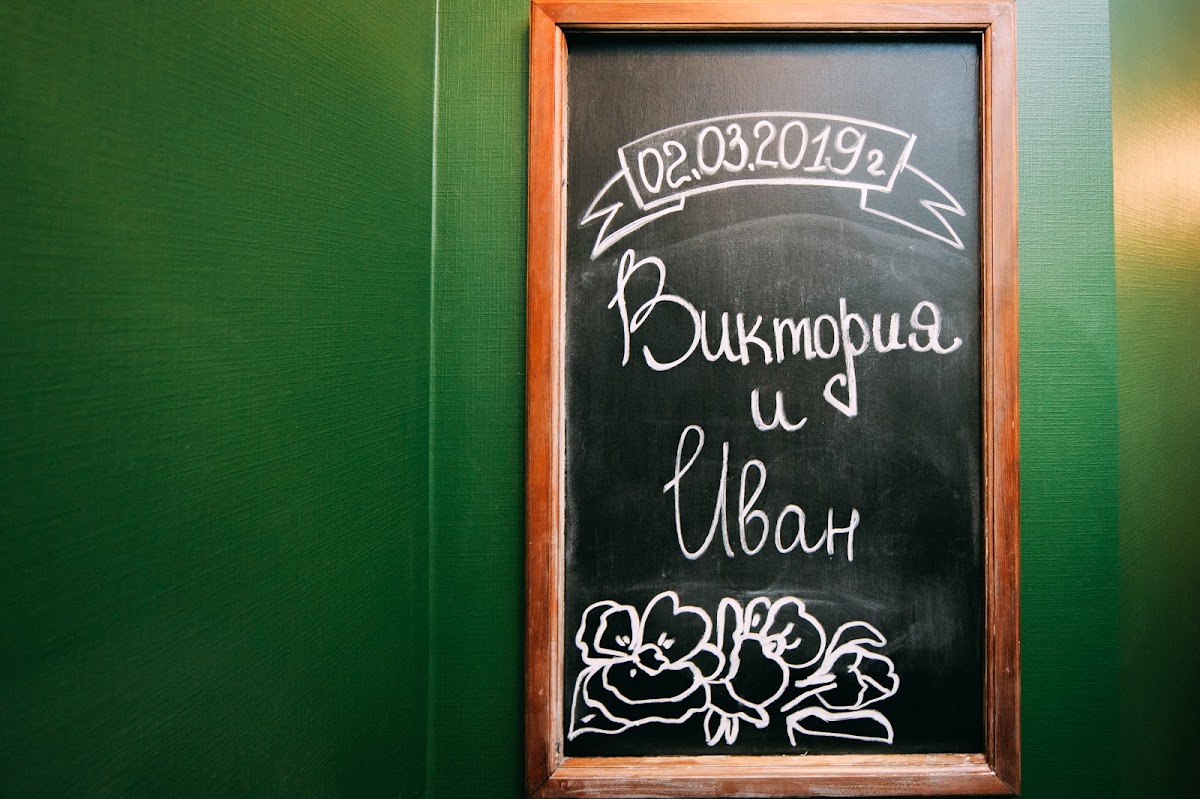 02.03.2019 г
Виктория
и
Иван